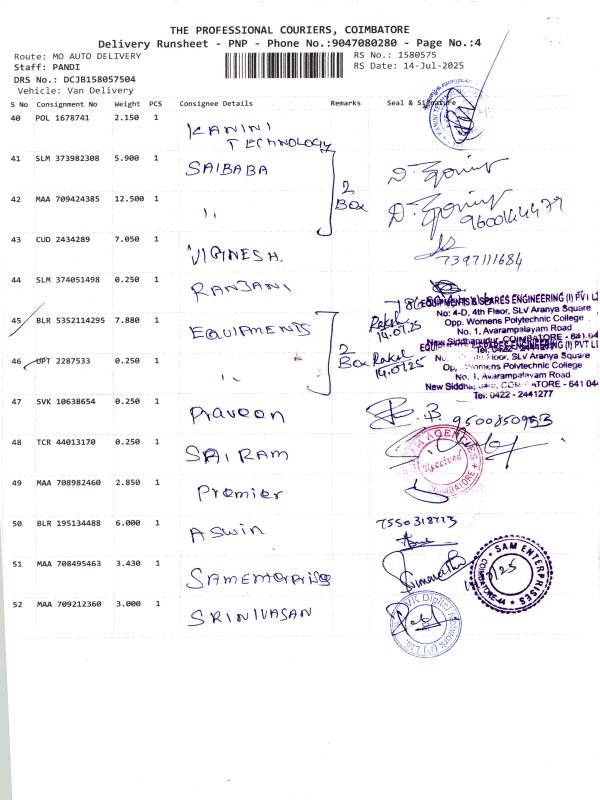 THE PROFESSIONAL COURIERS, COIMBATORE
Delivery Runsheet - PNP - Phone No.:9047080280 - Page No.:4
Route: MO AUTO DELIVERY RS No.: 1580575
Staff: PANDI RS Date: 14-Jul-2025
DRS No.: DCJB158057504
Vehicle: Van Delivery
S No Consignment No Weight PCS Consignee Details Remarks Seal & Signature
40 POL 1678741 2.150 1 KANINI TECHNOLOGY
41 SLM 373982308 5.900 1 SAIBABA
42 MAA 709424385 12.500 1 ,, 2 Box
43 CUD 2434289 7.050 1 VIGNESH. 7397111684
44 SLM 374051498 0.250 1 RANJANI
EQUIPMENTS & SPARES ENGINEERING (I) PVT L
No: 4-D, 4th Floor, SLV Aranya Square
Opp. Womens Polytechnic College
No. 1, Avarampalayam Road
45 BLR 5352114295 7.880 1 EQUIPMENTS Rakul 14.07.25
New Siddhapudur, COIMBATORE - 641 04
46 UPT 2287533 0.250 1 ,, 2 Box Rakul 14.07.25
Floor, SLV Aranya Square
Womens Polytechnic College
No. 1, Avarampalayam Road
New Siddha COIMBATORE - 641 044
Tel: 0422 - 2441277
47 SVK 10638654 0.250 1 Praveen 9500850953
48 TCR 44013170 0.250 1 SAIRAM
AGENCIES
Received
COIMBATORE
49 MAA 708982460 2.850 1 Premier
50 BLR 195134488 6.000 1 ASWIN
51 MAA 708495463 3.430 1 SAM Enterprise
SAM ENTERPRISES
COIMBATORE-44
52 MAA 709212360 3.000 1 SRINIVASAN
VK Digital Network (P) Ltd.